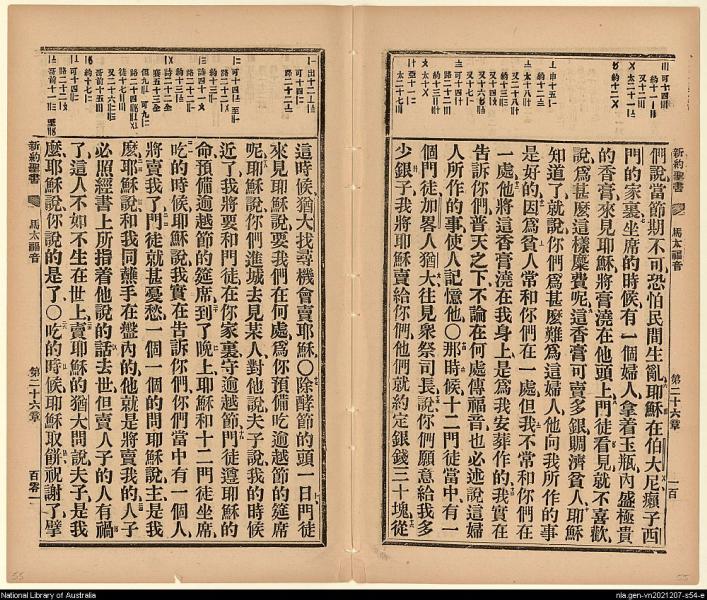 新約聖書
馬太福音
第二十六章
一百
們說當節期不可恐怕民間生亂耶穌在伯大尼癩子西
門的家裏坐席的時候有一個婦人拿着玉瓶內盛極貴
的香膏來見耶穌將膏澆在他頭上門徒看見就不喜歡
說爲甚麼這樣糜費呢這香膏可賣多銀賙濟貧人耶穌
知道了就說你們爲甚麼難爲這婦人他向我所作的事
是好的因爲貧人常和你們在一處但我不常和你們在
一處他將這香膏澆在我身上是爲我安葬作的我實在
告訴你們普天之下不論在何處傳福音也必述說這婦
人所作的事使人記憶他〇那時候十二門徒當中有一
個門徒加畧人猶大往見衆祭司長說你們願意給我多
少銀子我將耶穌賣給你們他們就約定銀錢三十塊從
這時候猶大找尋機會賣耶穌〇除酵節的頭一日門徒
來見耶穌說要我們在何處爲你預備吃逾越節的筵席
呢耶穌說你們進城去見某人對他說夫子說我的時候
近了我將要和門徒在你家裏守逾越節門徒遵耶穌的
命預備逾越節的筵席到了晚上耶穌和十二門徒坐席
吃的時候耶穌說我實在告訴你們你們當中有一個人
將賣我了門徒就甚憂愁一個一個的問耶穌說主是我
麼耶穌說和我同蘸手在盤內的他就是將賣我的人子
必照經書上所指着他說的話去世但賣人子的人有禍
了這人不如不生在世上賣耶穌的猶大問說夫子是我
麼耶穌說你說的是了〇吃的時候耶穌取餅祝謝了擘
新約聖書
馬太福音
第二十六章
百零一
55
55
National Library of Australia
nla.gen-vn2021207-s54-e